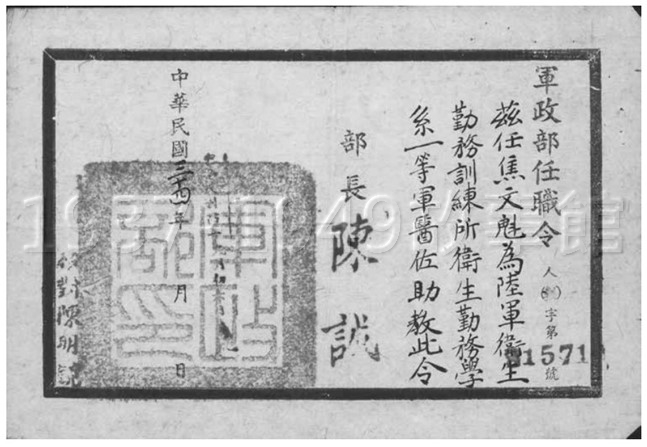 軍政部任職令
人字第
1571
號
茲任焦文魁為陸軍衛生
勤務訓練所衛生勤務學
系一等軍醫佐助教此令
部長陳誠
中華民國三十四年 月 日
軍政
部印
校對陳明